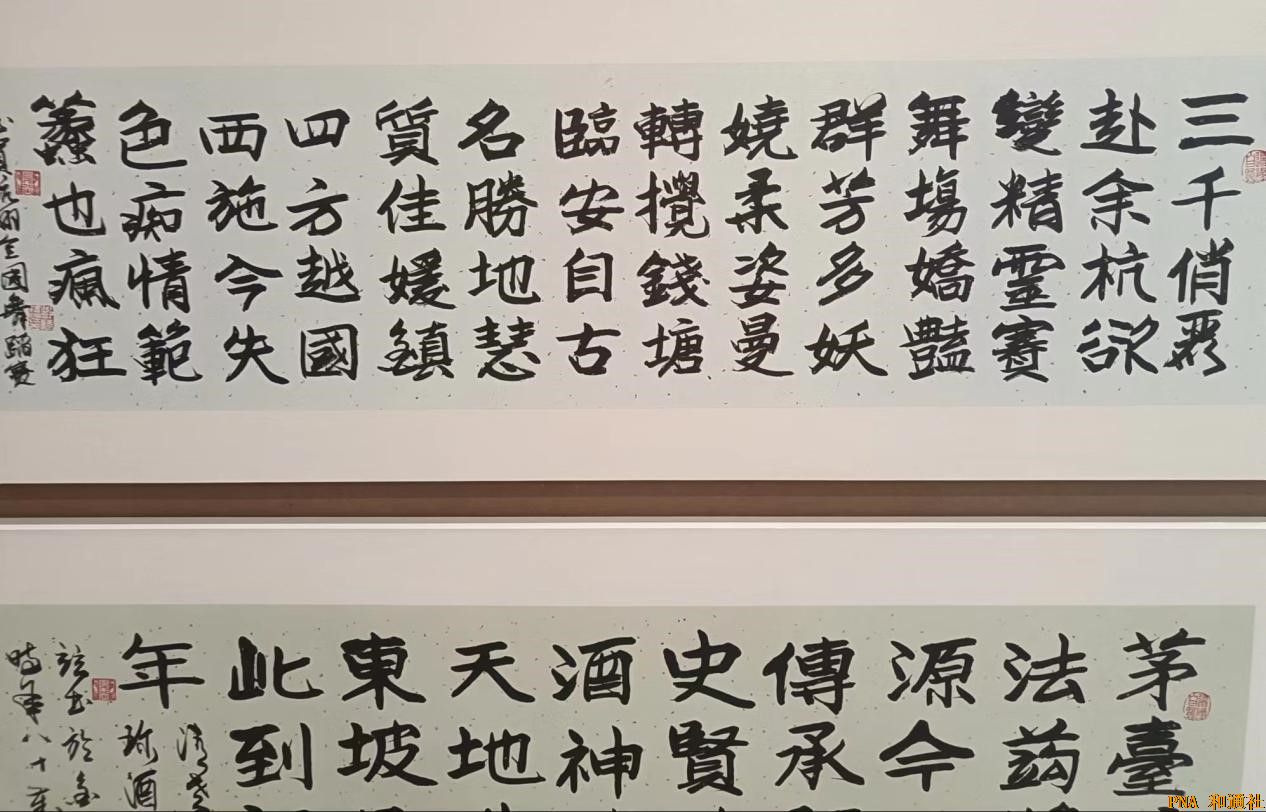 三千俏
赴余杭欲
變精靈賽
舞場嬌豔
群芳多妖
嬈柔姿曼
轉攪錢塘
臨安自古
名勝地慧
質佳媛鎮
四方越國
西施今失
色痴情範
蠡也瘋狂
全國舞蹈賽
茅臺
法蒟
源今
傳承
史賢
酒神
天地
東坡
此到
年
酒
時年八十
PNA 和通社